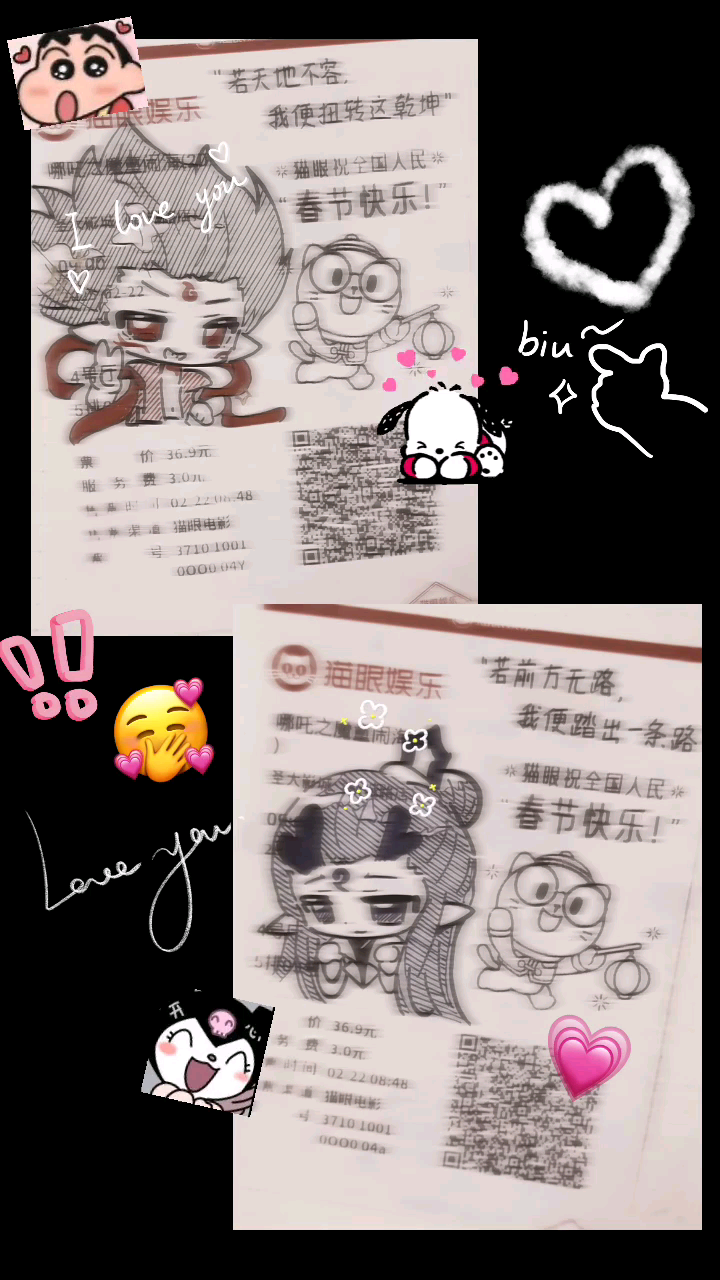 "若天地不容,
我便扭转这乾坤"
猫眼娱乐
哪吒之魔童闹海(2D
猫眼祝全国人民
"春节快乐!"
I love you
biu~
票 价 36.9元
服 务 费 3.0元
02.22 08:48
猫眼电影
号 3710 1001
0000 04Y
猫眼娱乐
"若前方无路,
我便踏出一条路
哪吒之魔童闹海
)
猫眼祝全国人民
"春节快乐!"
圣大影城
Love you
开
心
价 36.9元
务 费 3.0元
时间 02.22 08:48
渠道 猫眼电影
号 3710 1001
0000 04a